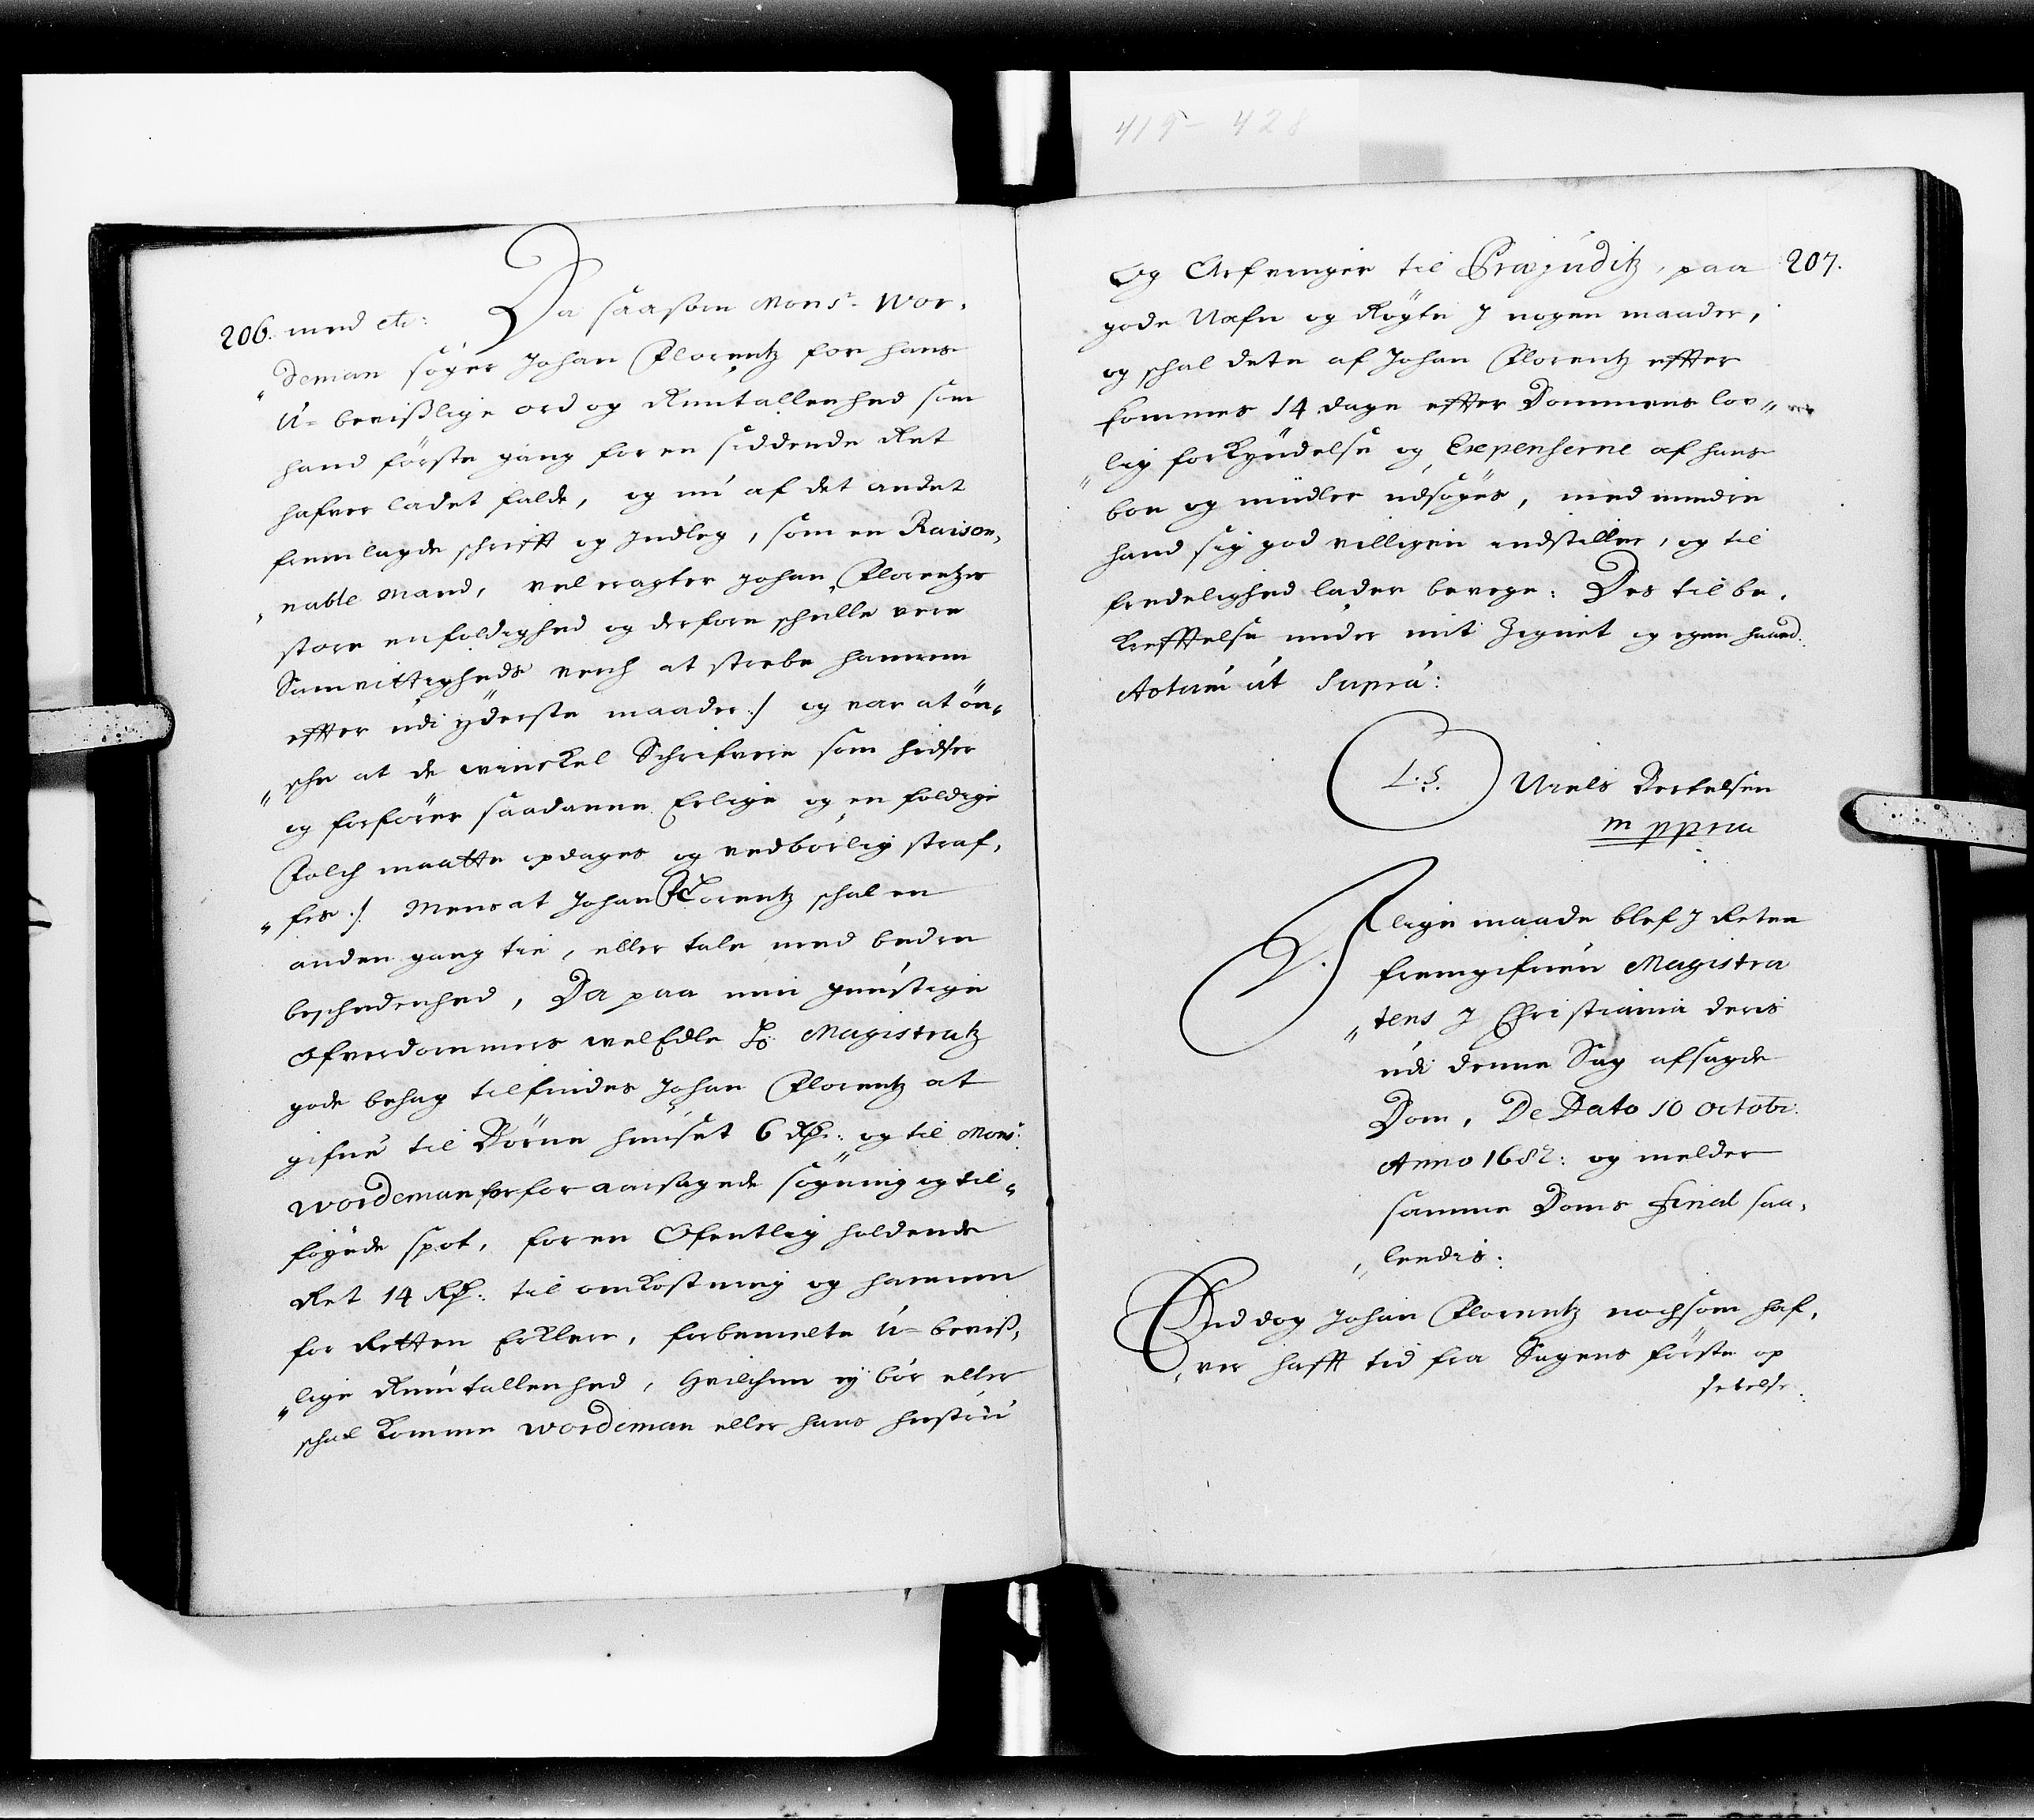 206. med etc: Da saasom Mons:r Wor,
„deman søger Johan Florentz for hans
U=bevißlige ord og Runtallenhed som
hand første gang for en siddende Ret
hafver ladet falde, og nu af det andet
fremlagde schrifft og Jndleg, som en Raison,
„nable Mand, vel eragter Johan Florentzes
store enfoldighed og derfore schulle vere
Samvittigheds verch at strebe hannem
effter udi yderste maader :/ og var at ön„
„sche at de winckel Schrifvere som hidser
og forfører saadanne Erlige og en foldige
Folch maatte opdages og vedborlig straf,
„fes :/ Mens at Johan Florentz schal en
anden gang tie, eller tale med bedre
beschedenhed, Da paa min gunstige
Ofverdommers welEdle Magistratz
gode behag tilfindes Johan Florentz at
gifve til Børne huuset 6 Rdr: og til Mons:r
Wordeman for foraarsagede søgning og til„
føyede spot, for en Ofentlig holdende
Ret 14 Rdr: til omkostning og hannem
for Retten Erklere, forbemelte U=beviß,
„lige Runtallenhed, Hvilchen ej bør eller
schal komme Wordeman eller hans hustru
419 - 428
207.
Og Arfvinger til Præjuditz, paa
gode Nafn og Røgte J nogen maader,
og schal dete af Johan Florentz effter
kommes 14 dage effter Dommens lov„
„lig forkyndelse og Expenserne af hans
boe og midler udsøges, med mindre
hand sig god villigen indstiller, og til
fredelighed lader bevege: Des til be,
krefftelse under mit Zignet og egen haand.
Actum ut Supra:
L.S. Niels Bertelsen
m ppria
J lige maade blef J Reten
fremgifven Magistra
„tens J Christiania deris
udi denne Sag afsagde
Dom, De Dato 10 Octobr:
Anno 1682: og melder
samme Doms final saa,
„ledes:
End dog Johan Florentz nochsom haf,
„ver hafft tid fra Sagens første op
settelse